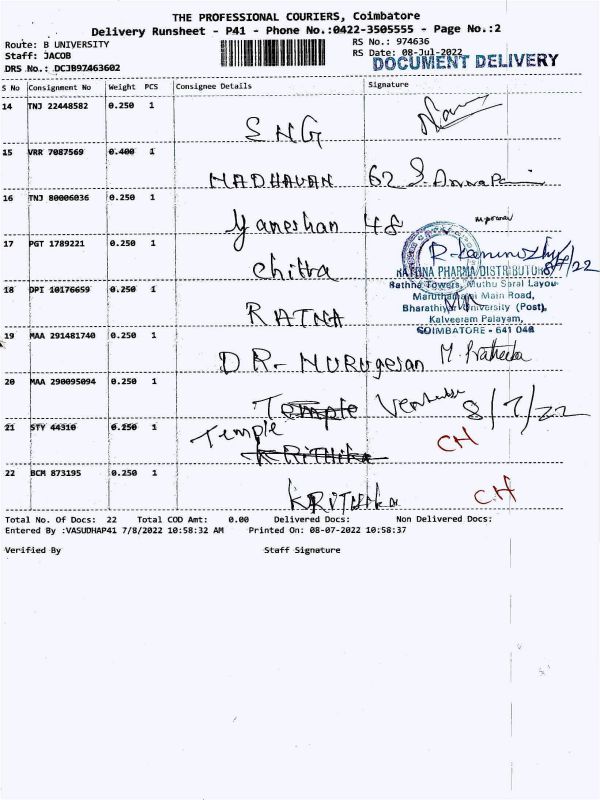 THE PROFESSIONAL COURIERS, Coimbatore
Delivery Runsheet - P41 - Phone No.:0422-3505555 - Page No.:2
Route: B UNIVERSITY
RS No.: 974636
Staff: JACOB
RS Date: 08-Jul-2022
DRS No.: DCJB97463602
DOCUMENT DELIVERY
S No Consignment No Weight PCS Consignee Details Signature
14 TNJ 22448582 0.250 1
SNG
15 VRR 7087569 0.400 1
MADHAVAN 62
16 TNJ 80006036 0.250 1
Yaneshan 48
17 PGT 1789221 0.250 1
Chitra
RATHNA PHARMA DISTRIBUTORS
18 DPI 10176659 0.250 1
Rathna Towers, Muthu Saral Layout
Maruthamalai Main Road,
RATNA
Bharathiyar University (Post),
Kalveeram Palayam,
COIMBATORE - 641 046
19 MAA 291481740 0.250 1
DR- MURUgesan
20 MAA 290095094 0.250 1
Temple 8/7/22
21 STY 44310 0.250 1
Temple
KRITHIKA CH
22 BCM 873195 0.250 1
KRITHIKA CH
Total No. Of Docs: 22 Total COD Amt: 0.00 Delivered Docs: Non Delivered Docs:
Entered By :VASUDHAP41 7/8/2022 10:58:32 AM Printed On: 08-07-2022 10:58:37
Verified By Staff Signature